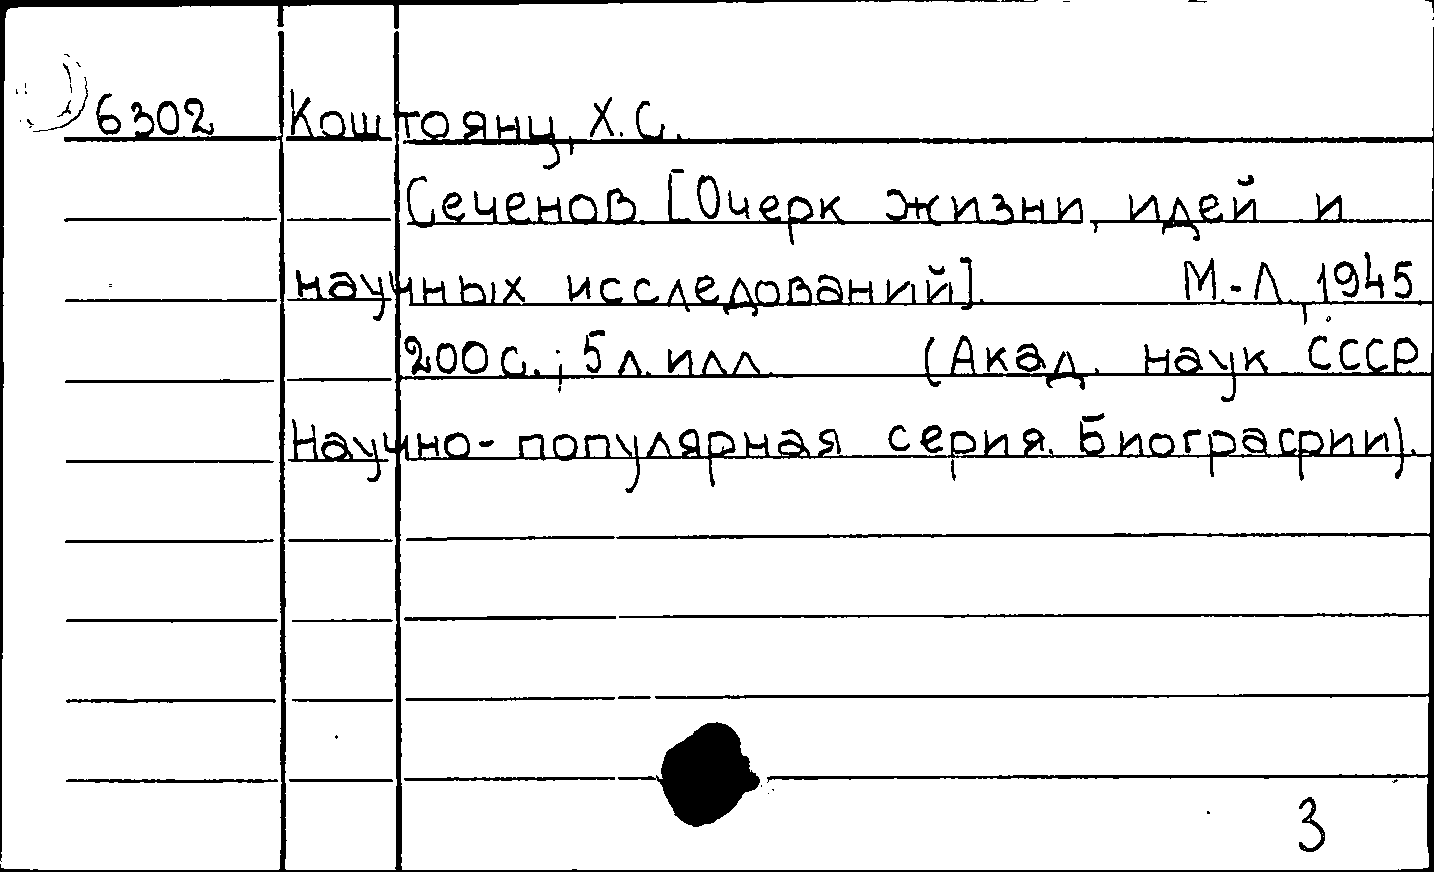 6302 Коштоянц, Х.С.
Сеченов. [Очерк жизни, идей и
научных исследований]. М.-Л., 1945.
200 с.; 5 л. илл. (Акад. наук СССР
Научно-популярная серия. Биографии).
3